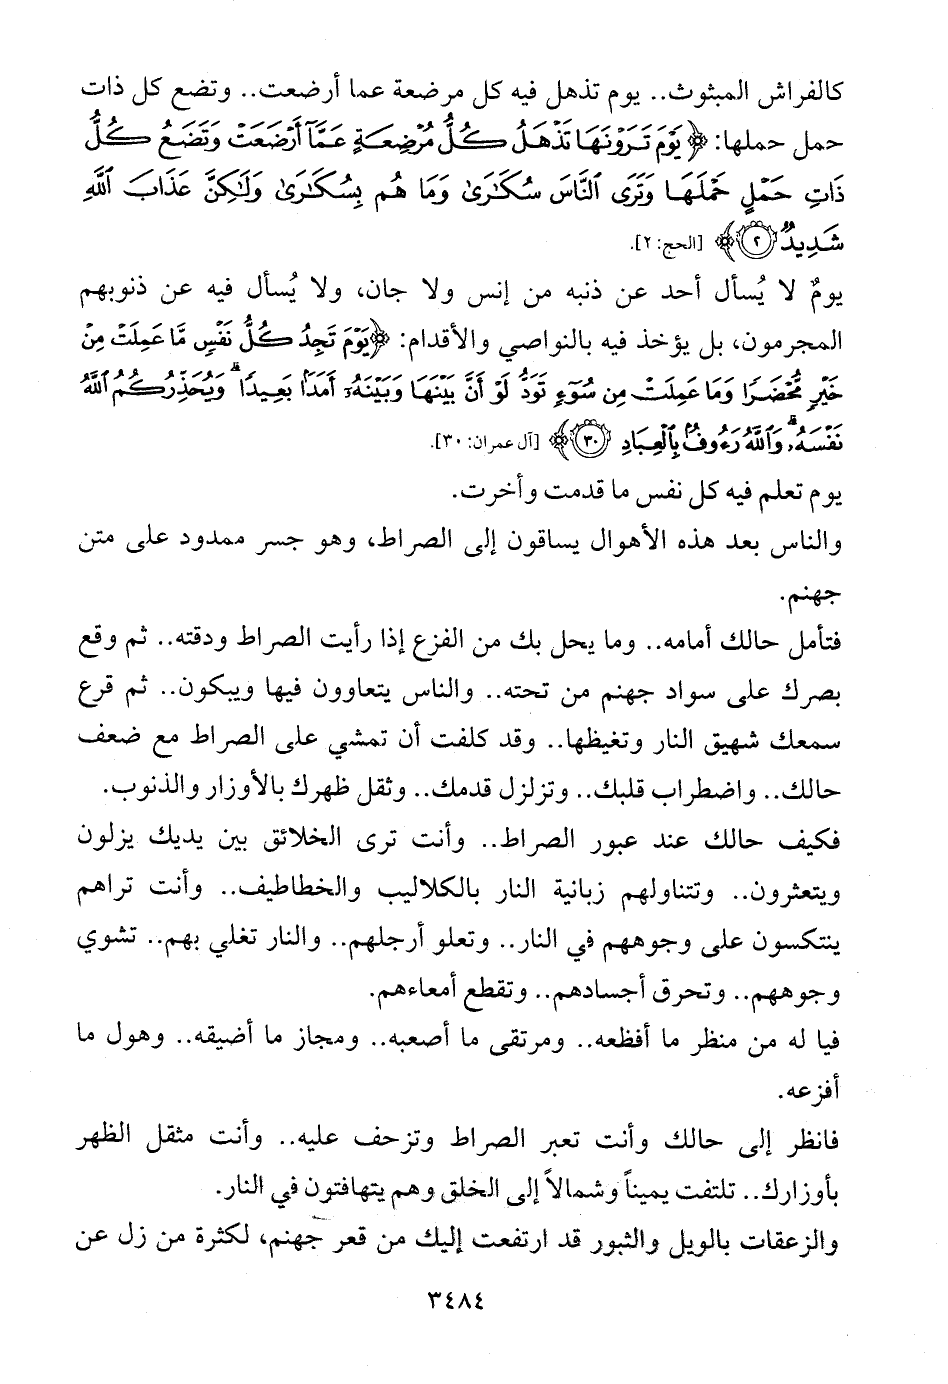 كالفراش المبثوث.. يوم تذهل فيه كل مرضعة عما أرضعت.. وتضع كل ذات
حمل حملها: ﴿يَوْمَ تَرَوْنَهَا تَذْهَلُ كُلُّ مُرْضِعَةٍ عَمَّآ أَرْضَعَتْ وَتَضَعُ كُلُّ
ذَاتِ حَمْلٍ حَمْلَهَا وَتَرَى ٱلنَّاسَ سُكَٰرَىٰ وَمَا هُم بِسُكَٰرَىٰ وَلَٰكِنَّ عَذَابَ ٱللَّهِ
شَدِيدٌ ٢﴾ [الحج: ٢].
يومٌ لا يُسأل أحد عن ذنبه من إنس ولا جان، ولا يُسأل فيه عن ذنوبهم
المجرمون، بل يؤخذ فيه بالنواصي والأقدام: ﴿يَوْمَ تَجِدُ كُلُّ نَفْسٍ مَّا عَمِلَتْ مِنْ
خَيْرٍ مُّحْضَرًا وَمَا عَمِلَتْ مِن سُوٓءٍ تَوَدُّ لَوْ أَنَّ بَيْنَهَا وَبَيْنَهُۥٓ أَمَدًۢا بَعِيدًا ۗ وَيُحَذِّرُكُمُ ٱللَّهُ
نَفْسَهُۥ ۗ وَٱللَّهُ رَءُوفٌۢ بِٱلْعِبَادِ ٣٠﴾ [آل عمران: ٣٠].
يوم تعلم فيه كل نفس ما قدمت وأخرت.
والناس بعد هذه الأهوال يساقون إلى الصراط، وهو جسر ممدود على متن
جهنم.
فتأمل حالك أمامه.. وما يحل بك من الفزع إذا رأيت الصراط ودقته.. ثم وقع
بصرك على سواد جهنم من تحته.. والناس يتعاوون فيها ويبكون.. ثم قرع
سمعك شهيق النار وتغيظها.. وقد كلفت أن تمشي على الصراط مع ضعف
حالك.. واضطراب قلبك.. وتزلزل قدمك.. وثقل ظهرك بالأوزار والذنوب.
فكيف حالك عند عبور الصراط.. وأنت ترى الخلائق بين يديك يزلون
ويتعثرون.. وتتناولهم زبانية النار بالكلاليب والخطاطيف.. وأنت تراهم
ينتكسون على وجوههم في النار.. وتعلو أرجلهم.. والنار تغلي بهم.. تشوي
وجوههم.. وتحرق أجسادهم.. وتقطع أمعاءهم.
فيا له من منظر ما أفظعه.. ومرتقى ما أصعبه.. ومجاز ما أضيقه.. وهول ما
أفزعه.
فانظر إلى حالك وأنت تعبر الصراط وتزحف عليه.. وأنت مثقل الظهر
بأوزارك.. تلتفت يميناً وشمالاً إلى الخلق وهم يتهافتون في النار.
والزعقات بالويل والثبور قد ارتفعت إليك من قعر جهنم، لكثرة من زل عن
٣٤٨٤